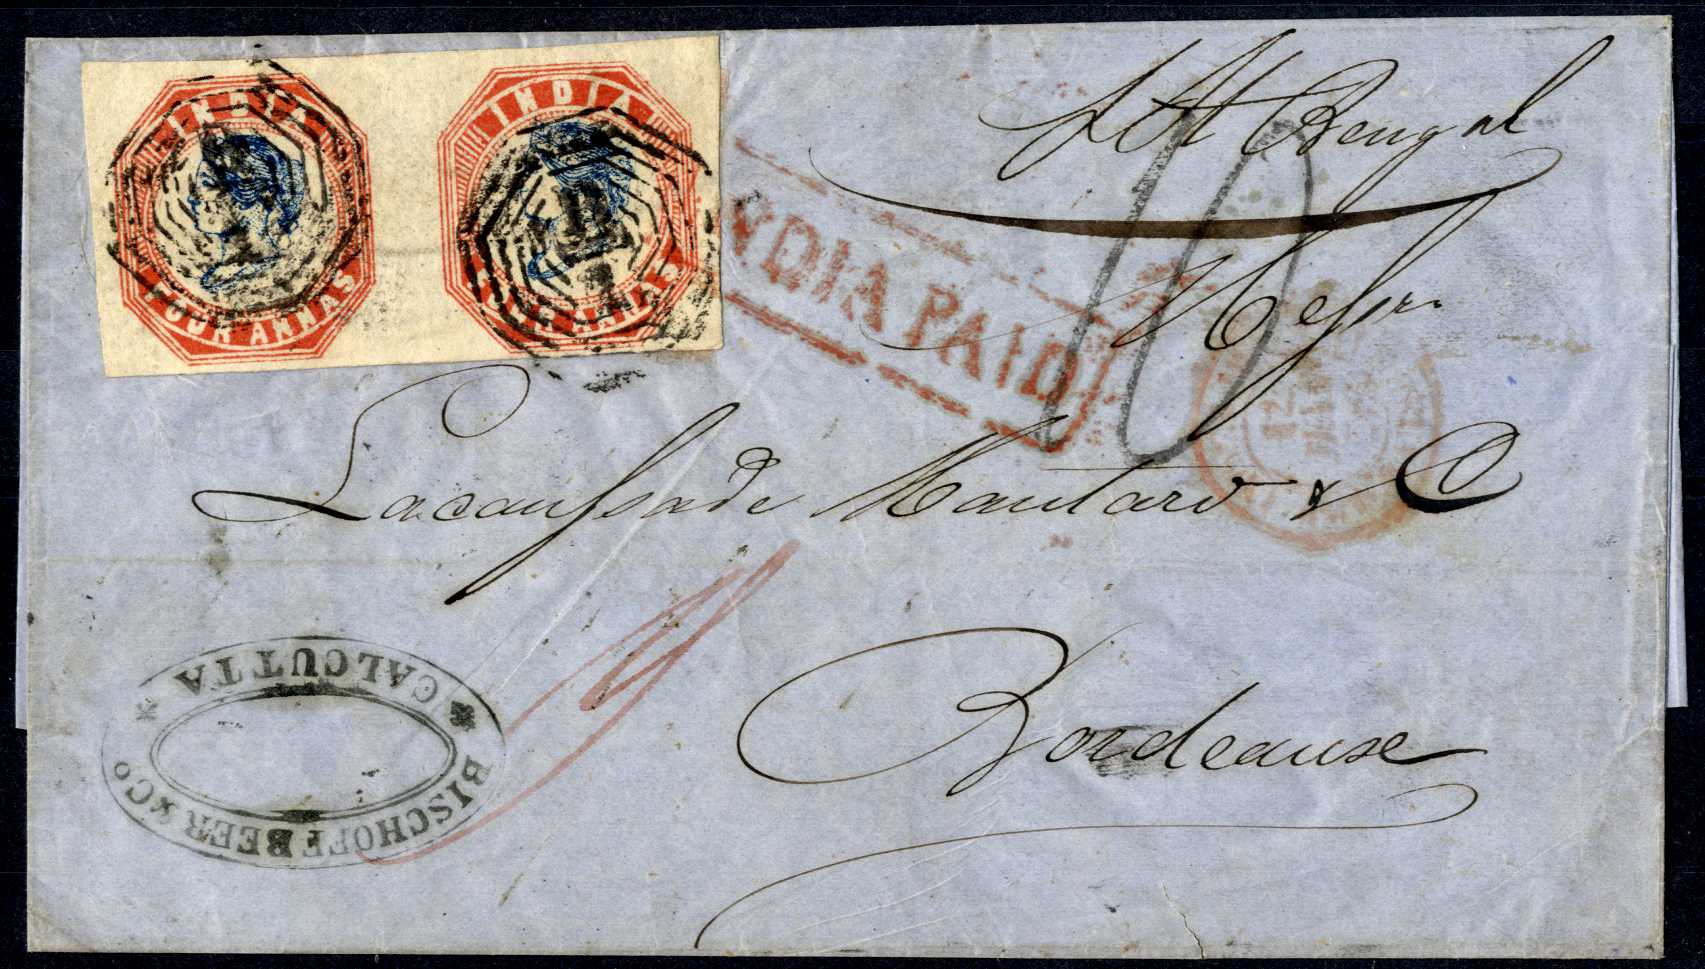 INDIA
FOUR ANNAS
INDIA
FOUR ANNAS
B
1
INDIA PAID
10
Bengal
Messrs
Lacaussade Mautard & C
Bordeaux
BISCHOFF BEER & Co
CALCUTTA
12